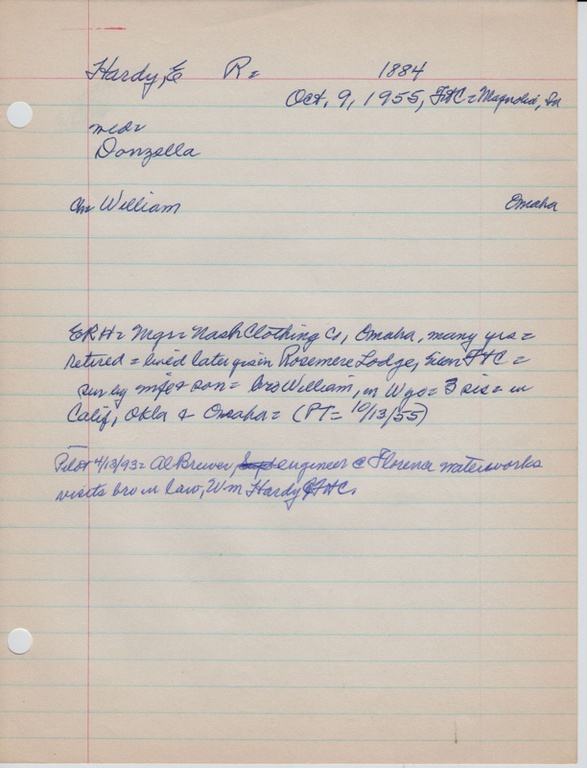 Hardy, E R= 1884
Oct, 9, 1955, Ft C= Magnolia, Ia
md=
Donzella
Ch= William Omaha
ERH= Mgr= Nash Clothing Co, Omaha, many yrs=
retired= lived later yrs in Rosemere Lodge, Ft C=
sur by wife & son= bro William, in Wyo= 3 sis= in
Calif, Okla & Omaha= (PT= 10/13/55)
Pilot 4/13/93= Al Brewer, engineer @ Florence waterworks
visits bro in law, Wm Hardy Ft C.